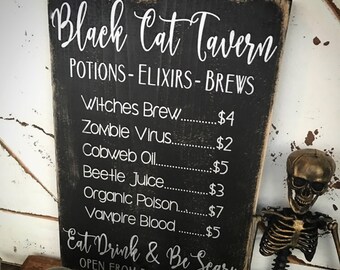 Black Cat Tavern
POTIONS - ELIXIRS - BREWS
Witches Brew..........$4
Zombie Virus..........$2
Cobweb Oil..............$5
Beetle Juice............$3
Organic Poison.......$7
Vampire Blood .......$5
Eat Drink & Be Scary
OPEN FROM